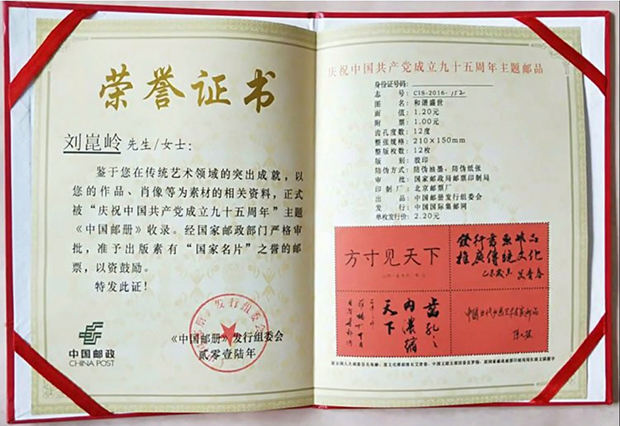 荣誉证书
刘崑岭 先生/女士:
鉴于您在传统艺术领域的突出成就，以
您的作品、肖像等为素材的相关资料，正式
被“庆祝中国共产党成立九十五周年”主题
《中国邮册》收录。经国家邮政部门严格审
批，准予出版素有“国家名片”之誉的邮
票，以资鼓励。
特发此证！
中国邮政
CHINA POST
《中国邮册》发行组委会
贰零壹陆年
庆祝中国共产党成立九十五周年主题邮品
身份证号码:
志号: CIS-2016-112
图名: 和谐盛世
面值: 1.20元
附票: 1.00元
齿孔度数: 12度
整张规格: 210×150mm
整版枚数: 12枚
版别: 胶印
防伪: 防伪油墨、防伪纸张
审批: 国家邮政局邮票印制局
印制厂: 北京邮票厂
出品: 中国邮册发行组委会
发行: 中国国际集邮网
单枚发行价: 2.20元
方寸见天下
发行书画邮品
推广传统文化
齿孔之
内浓缩
天下